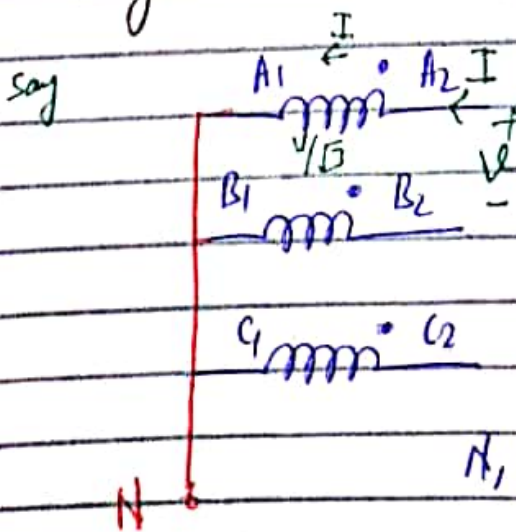 I
say A1 A2 I
V/√3 +
V
B1 B2 -
C1 C2
N1
N